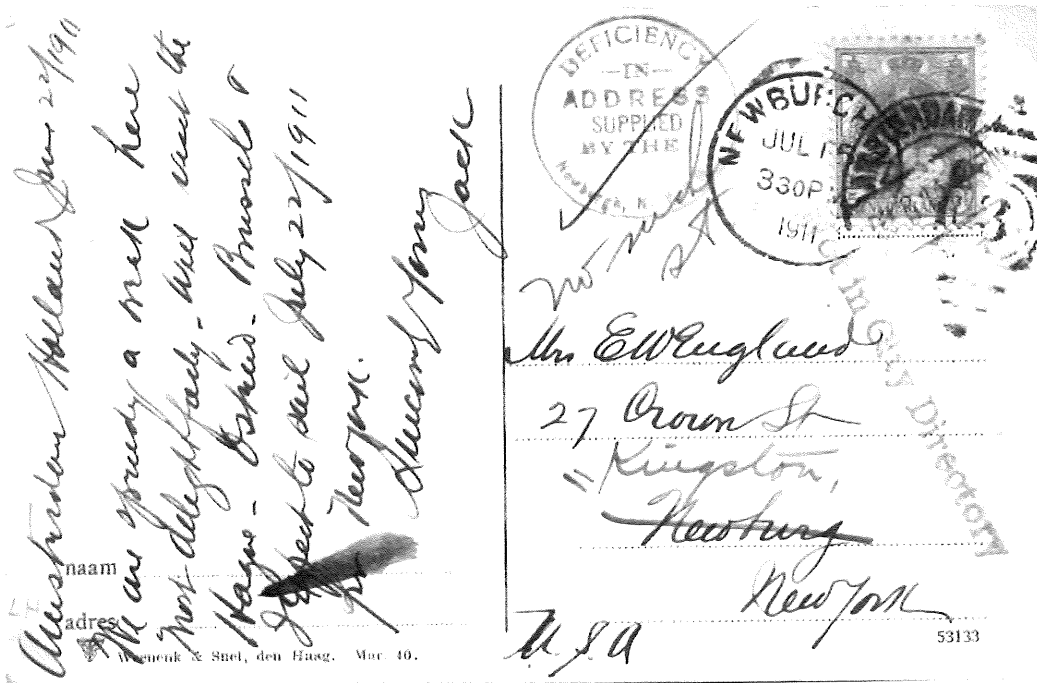 Amsterdam Holland June 22/1911
We are spending a week here
most delightfully - will visit the
Hague - Ostend - Brussels &
Expect to sail July 22/1911
for New York.
Sincerely Yours
Jack
naam
adres
Weenenk & Snel, den Haag. Mar. 40.
DEFICIENCY
—IN—
ADDRESS
SUPPLIED
BY THE
Newburgh, N. Y.
NEWBURGH
JUL
330P
1911
AMSTERDAM
no such
st
in City Directory
Mrs E W England
27 Crown St
" Kingston,
Newburg
New York
U.S.A
53133